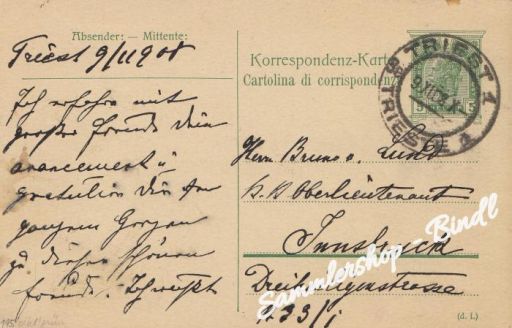 Absender: — Mittente:
Triest 9/11 1908
Ich erfahre mit
großer Freude Dein
avancement u
gratulire Dir von
ganzem Herzen
zu dieser schönen
Freude.
Korrespondenz-Karte
Cartolina di corrispondenza
TRIEST 1
TRIESTE 1
5
Herrn Bruno v.
K. K. Oberlieutenant
Innsbruck
Dreiheiligenstrasse
No 33/I
(d. i.)
Sammlershop - Bindl